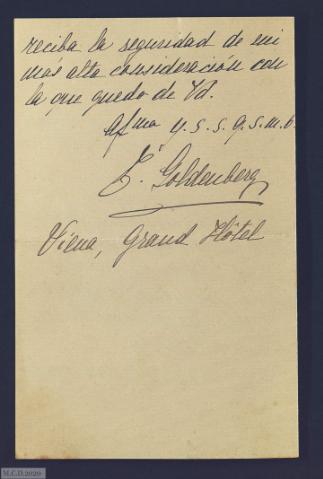 reciba la seguridad de mi
más alta consideración con
la que quedo de Vd.
Afmo y. s. s. q. s. m. b.
E. Goldenberg
Viena, Grand Hôtel
M.C.D.2020